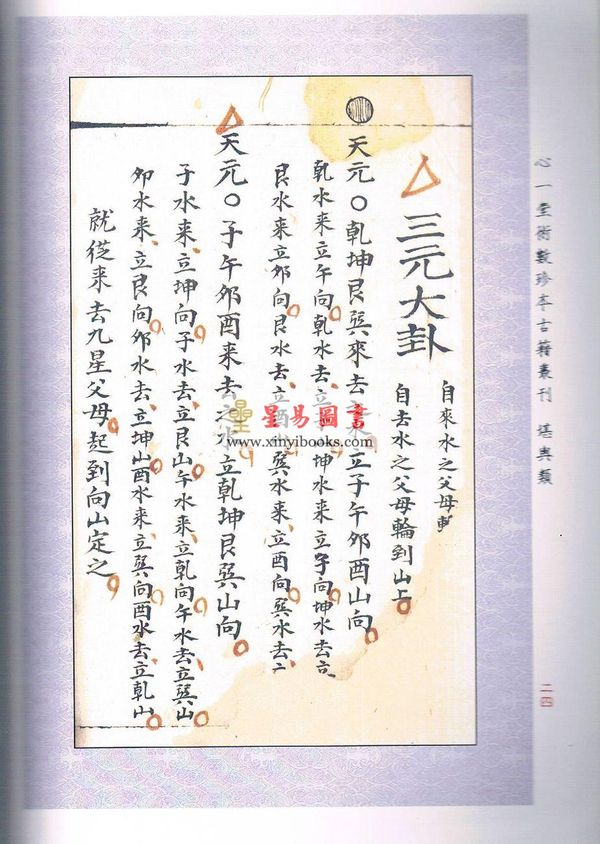 心一堂術數珍本古籍叢刊 堪輿類
二四
三元大卦
自來水之父母
自去水之父母輪到山上
天元〇乾坤艮巽來去 立子午卯酉山向
乾水来立午向乾水去立子 坤水来立子向坤水去立
艮水来立卯向艮水去立酉 巽水来立酉向巽水去
天元〇子午卯酉来去之水立乾坤艮巽山向
子水来立坤向子水去立艮山午水来立乾向午水去立巽山
卯水来立艮向卯水去立坤山酉水来立巽向酉水去立乾山
就從来去九星父母起到向山定之
星易圖書
www.xinyibooks.com